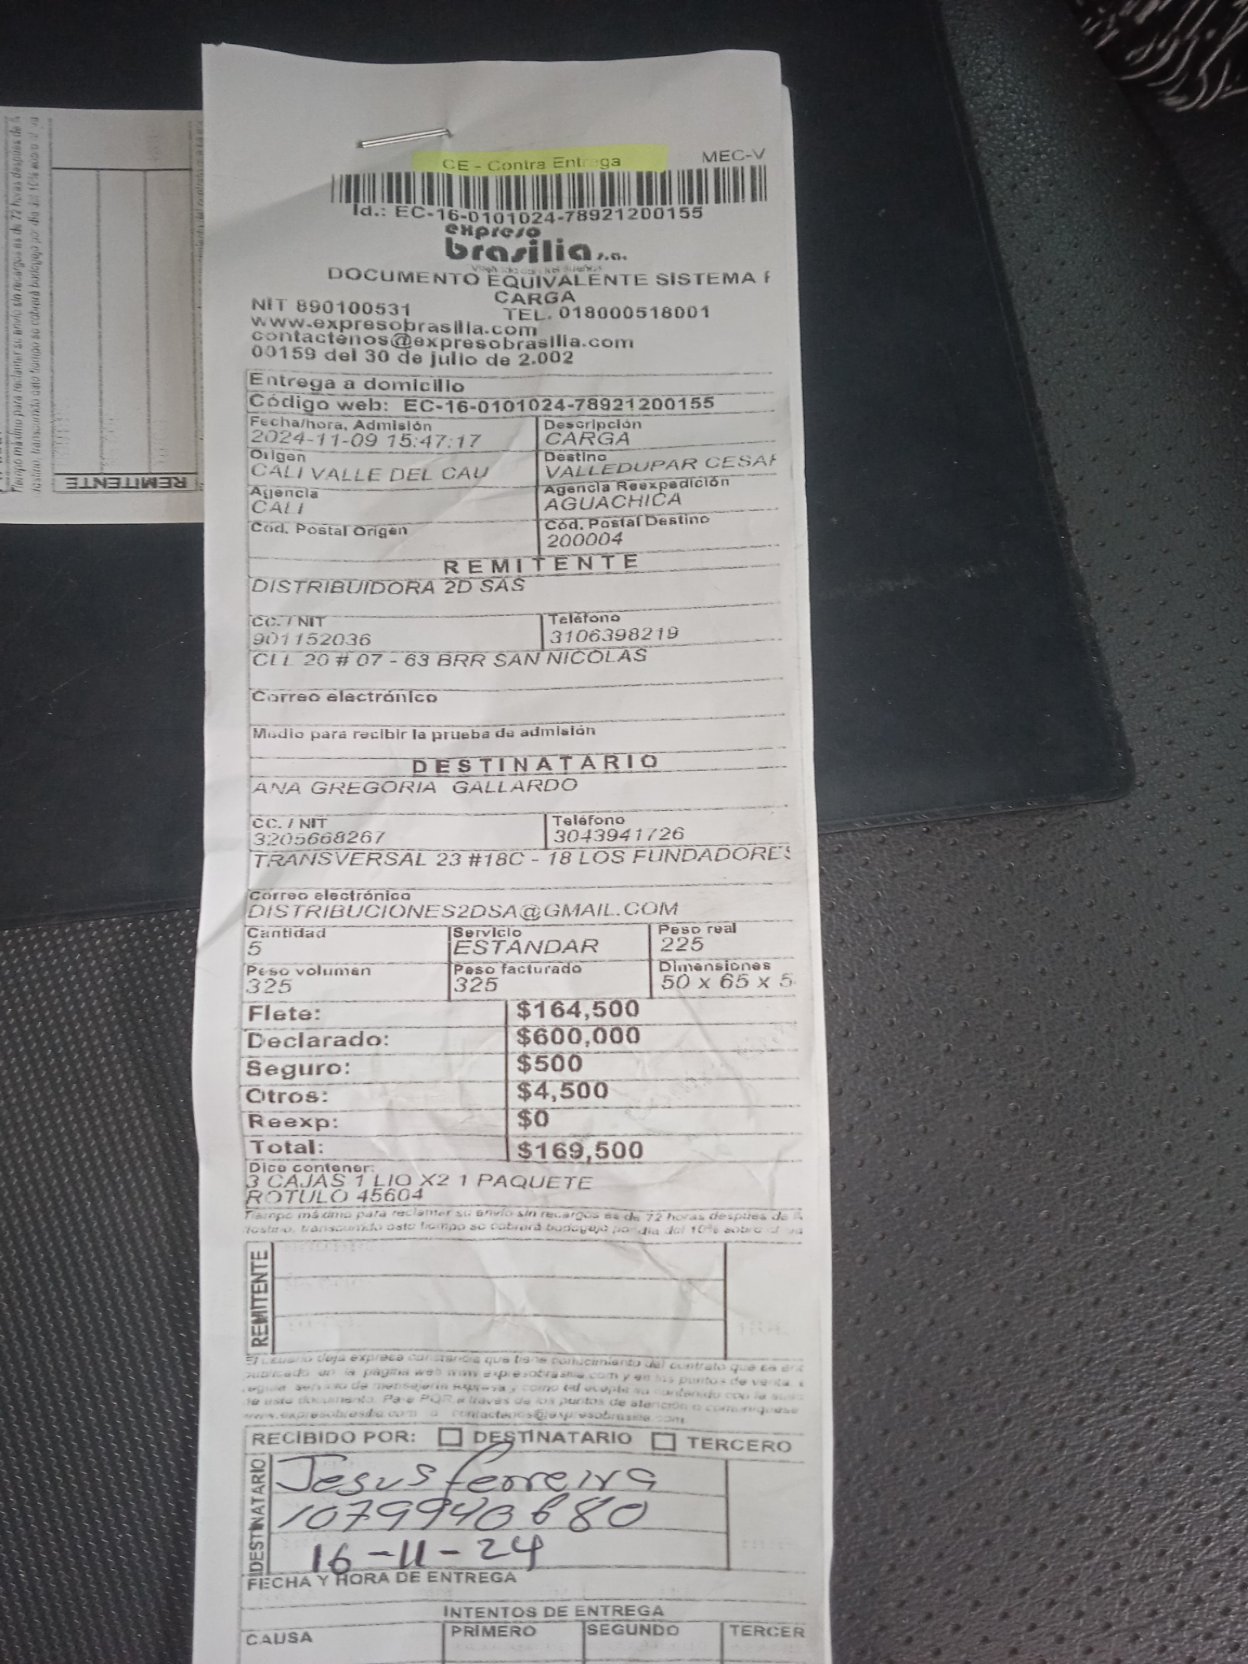 CE - Contra Entrega
MEC-V
Id.: EC-16-0101024-78921200155
expreso
brasilia s.a.
DOCUMENTO EQUIVALENTE SISTEMA
CARGA
NIT 890100531 TEL. 018000518001
www.expresobrasilia.com
contactenos@expresobrasilia.com
00159 del 30 de julio de 2.002
Entrega a domicilio
Código web: EC-16-0101024-78921200155
Fecha/hora, Admisión Descripción
2024-11-09 15:47:17 CARGA
Origen Destino
CALI VALLE DEL CAU VALLEDUPAR CESAR
Agencia Agencia Reexpedición
CALI AGUACHICA
Cód. Postal Origen Cód. Postal Destino
200004
REMITENTE
DISTRIBUIDORA 2D SAS
CC. / NIT Teléfono
901152036 3106398219
CLL 20 # 07 - 63 BRR SAN NICOLAS
Correo electrónico
Medio para recibir la prueba de admisión
DESTINATARIO
ANA GREGORIA GALLARDO
CC. / NIT Teléfono
3205668267 3043941726
TRANSVERSAL 23 #18C - 18 LOS FUNDADORES
Correo electrónico
DISTRIBUCIONES2DSA@GMAIL.COM
Cantidad Servicio Peso real
5 ESTANDAR 225
Peso volumen Peso facturado Dimensiones
325 325 50 x 65 x 5
Flete: $164,500
Declarado: $600,000
Seguro: $500
Otros: $4,500
Reexp: $0
Total: $169,500
Dice contener:
3 CAJAS 1 LIO X2 1 PAQUETE
ROTULO 45604
Tiempo máximo para reclamar su envío sin recargos es de 72 horas después de
destino, transcurrido este tiempo se cobrará bodegaje por día del 10% sobre
REMITENTE
El usuario deja expresa constancia que tiene conocimiento del contrato que se
publicado en la página web www.expresobrasilia.com y en los puntos de venta,
regula servicio de mensajería expresa y como tal acepta su contenido con la
de este documento. Para PQR a través de los puntos de atención o comuníquese
www.expresobrasilia.com o contactenos@expresobrasilia.com
RECIBIDO POR: DESTINATARIO TERCERO
DESTINATARIO
Jesus ferreira
1079940680
16-11-24
FECHA Y HORA DE ENTREGA
INTENTOS DE ENTREGA
CAUSA PRIMERO SEGUNDO TERCER
REMITENTE